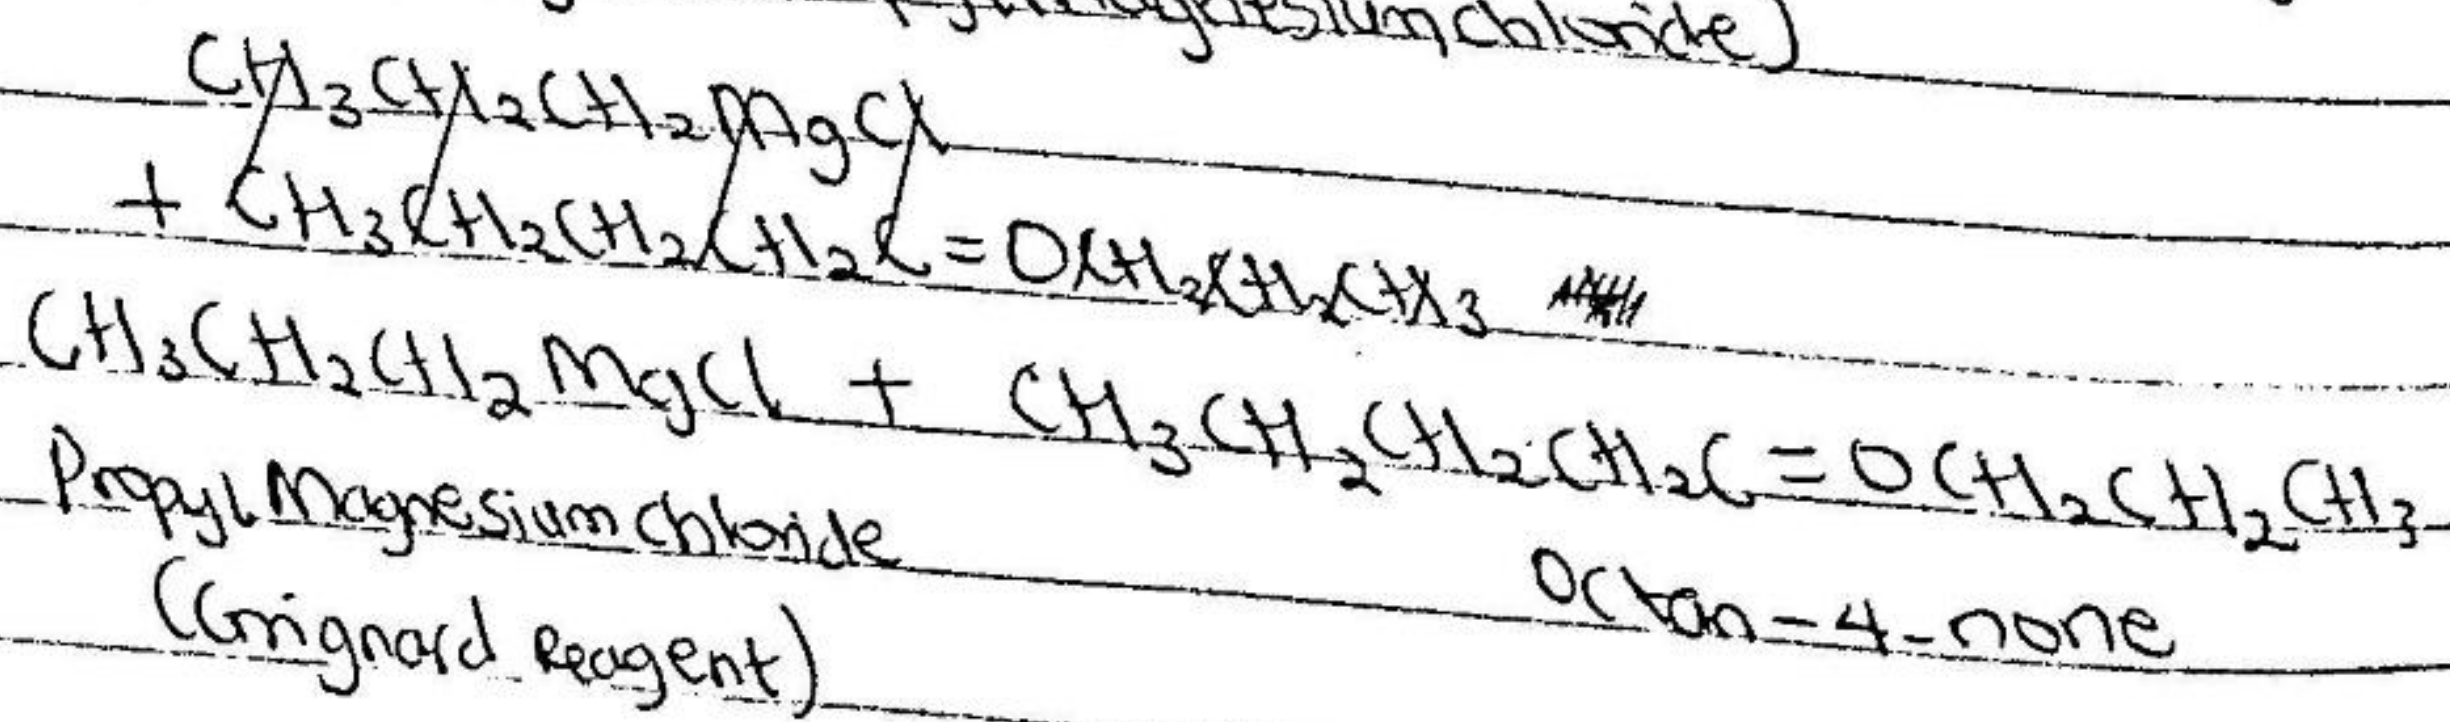 magnesium chloride)
CH3CH2CH2MgCl
+ CH3CH2CH2CH2C=OCH2CH2CH3
CH3CH2CH2MgCl + CH3CH2CH2CH2C=OCH2CH2CH3
Propyl Magnesium chloride
Octan-4-none
(Grignard Reagent)